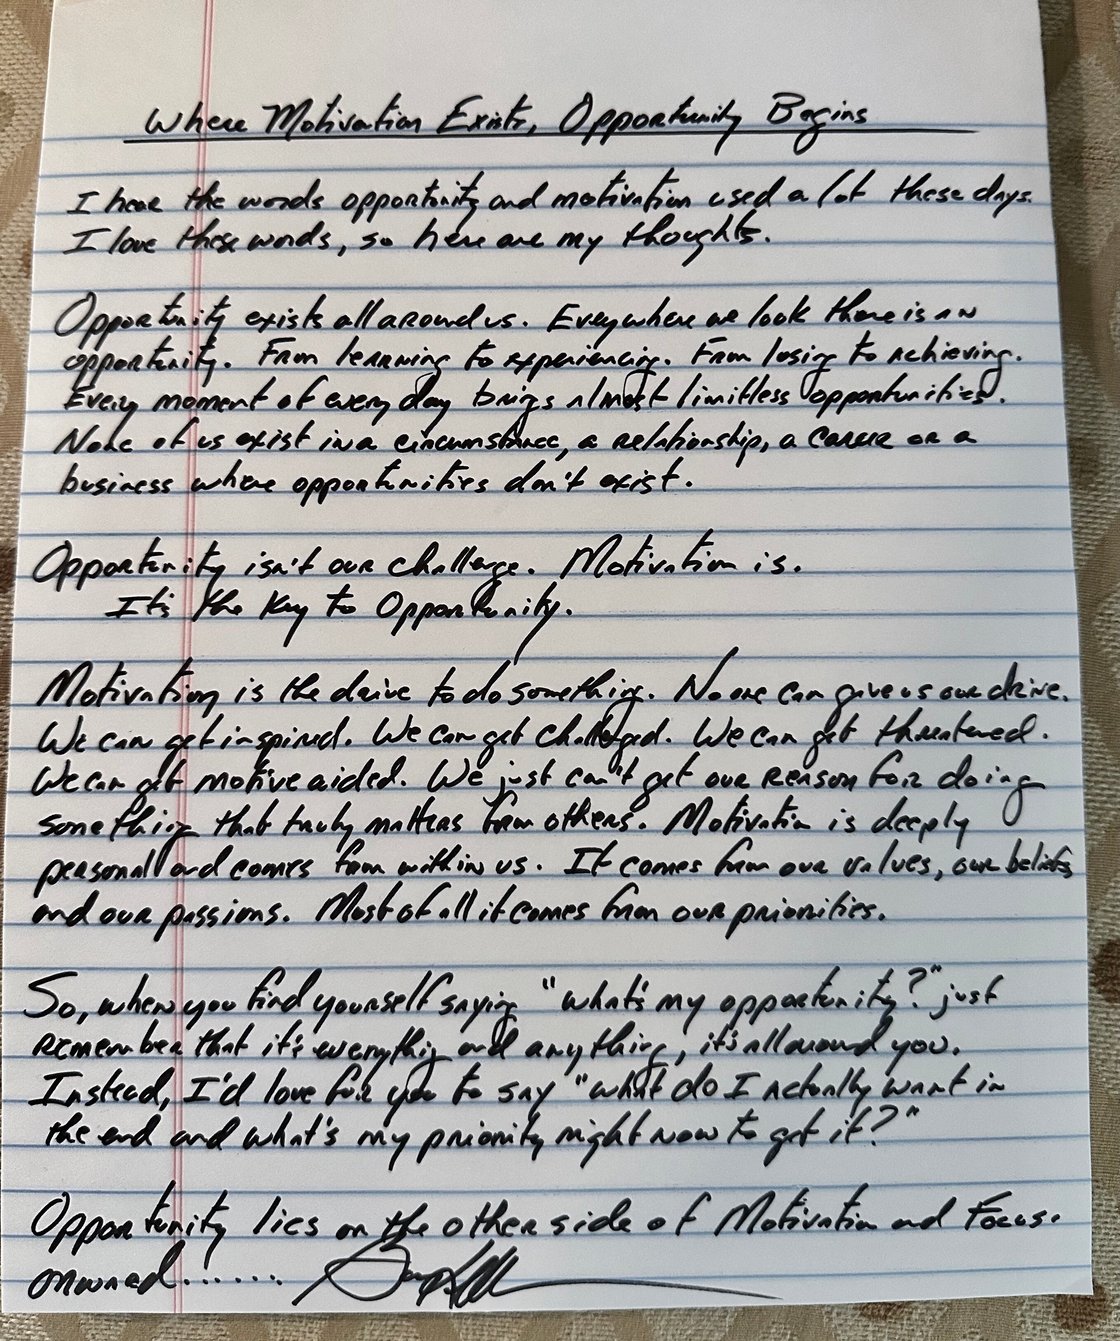 Where Motivation Exists, Opportunity Begins
I hear the words opportunity and motivation used a lot these days.
I love these words, so here are my thoughts.
Opportunity exists all around us. Everywhere we look there is an
opportunity. From learning to experiencing. From losing to achieving.
Every moment of every day brings almost limitless opportunities.
None of us exist in a circumstance, a relationship, a career or a
business where opportunities don't exist.
Opportunity isn't our challenge. Motivation is.
It's the Key to Opportunity.
Motivation is the drive to do something. No one can give us our drive.
We can get inspired. We can get challenged. We can get threatened.
We can get motive aided. We just can't get our reason for doing
something that truly matters from others. Motivation is deeply
personal and comes from within us. It comes from our values, our beliefs
and our passions. Most of all it comes from our priorities.
So, when you find yourself saying "what's my opportunity?" just
remember that it's everything and anything, it's all around you.
Instead, I'd love for you to say "what do I actually want in
the end and what's my priority right now to get it?"
Opportunity lies on the other side of Motivation and Focus.
onward.......